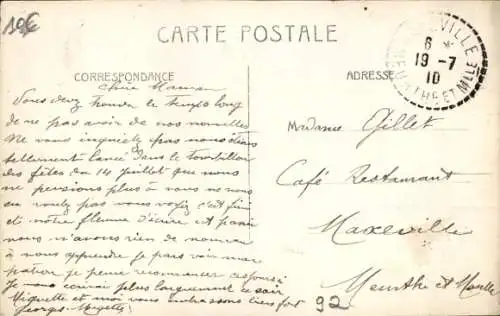 10€
CARTE POSTALE
VILLE
6 *
19-7
10
MEURTHE ET MLLE
CORRESPONDANCE
ADRESSE
Chère Maman
Vous devez trouver le temps long
de ne pas avoir de nos nouvelles
Ne vous inquiétez pas nous étions
tellement lancé dans le tourbillon
des fêtes du 14 juillet que nous
ne pensions plus à vous ne nous
en voulez pas vous voyez c'est fini
et notre flemme d'écrire est passé
nous n'avons rien de nouveau
à vous apprendre je pars voir mon
patron je pense recommencer
Je vous écrirai plus longuement ce soir
Miquette et moi vous embrassons bien fort
Georges
Madame Gillet
Café Restaurant
Maxeville
Meurthe et Moselle
92